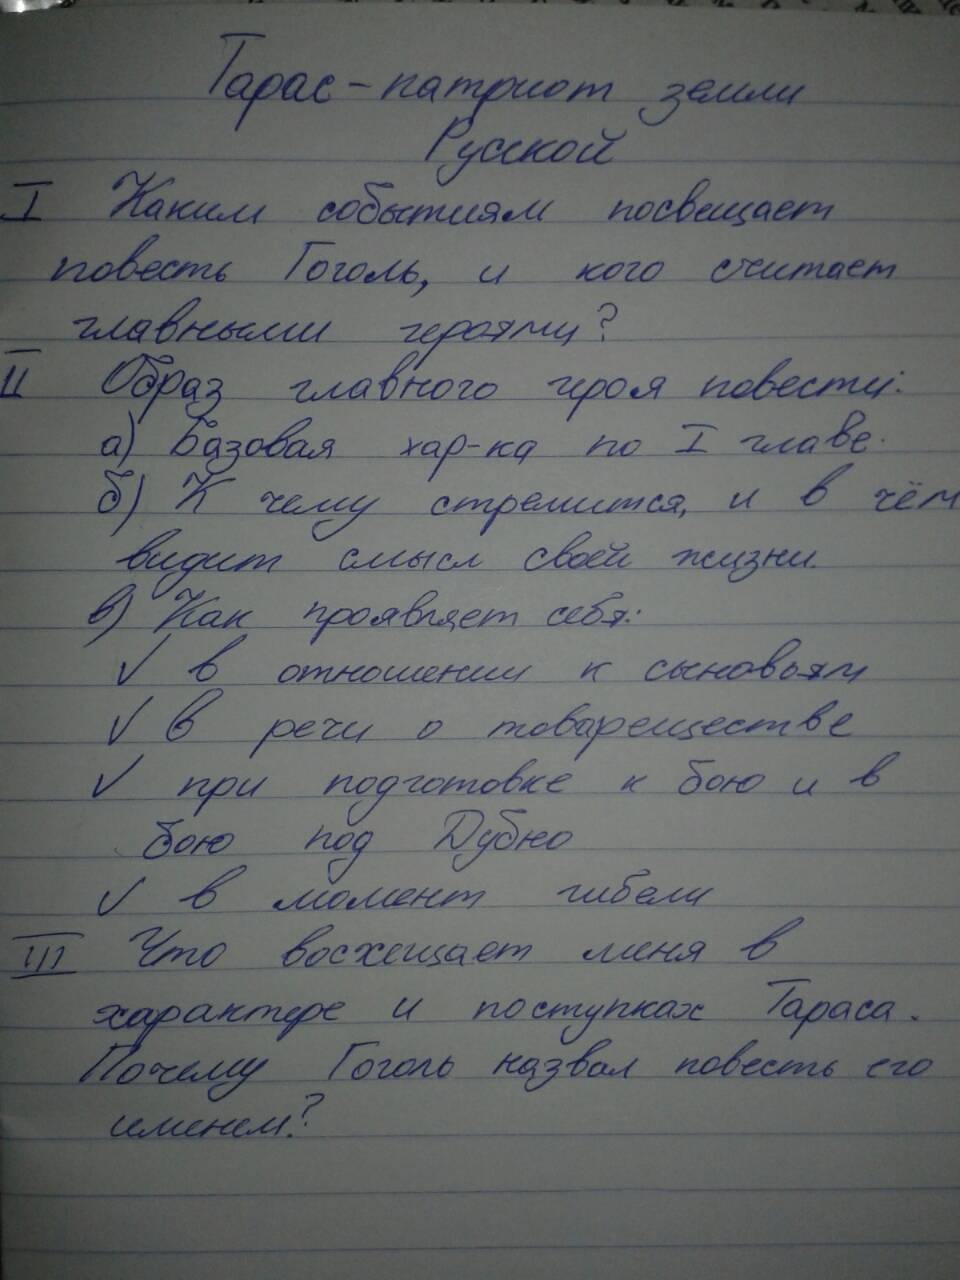 Тарас - патриот земли
Русской
I Каким событиям посвещает
повесть Гоголь, и кого считает
главными героями?
II Образ главного героя повести:
а) Базовая хар-ка по I главе.
б) К чему стремится, и в чём
видит смысл своей жизни.
в) Как проявляет себя:
✓ в отношении к сыновьям
✓ в речи о товареществе
✓ при подготовке к бою и в
бою под Дубно
✓ в момент гибели
III Что восхещает меня в
характере и поступках Тараса.
Почему Гоголь назвал повесть его
именем?